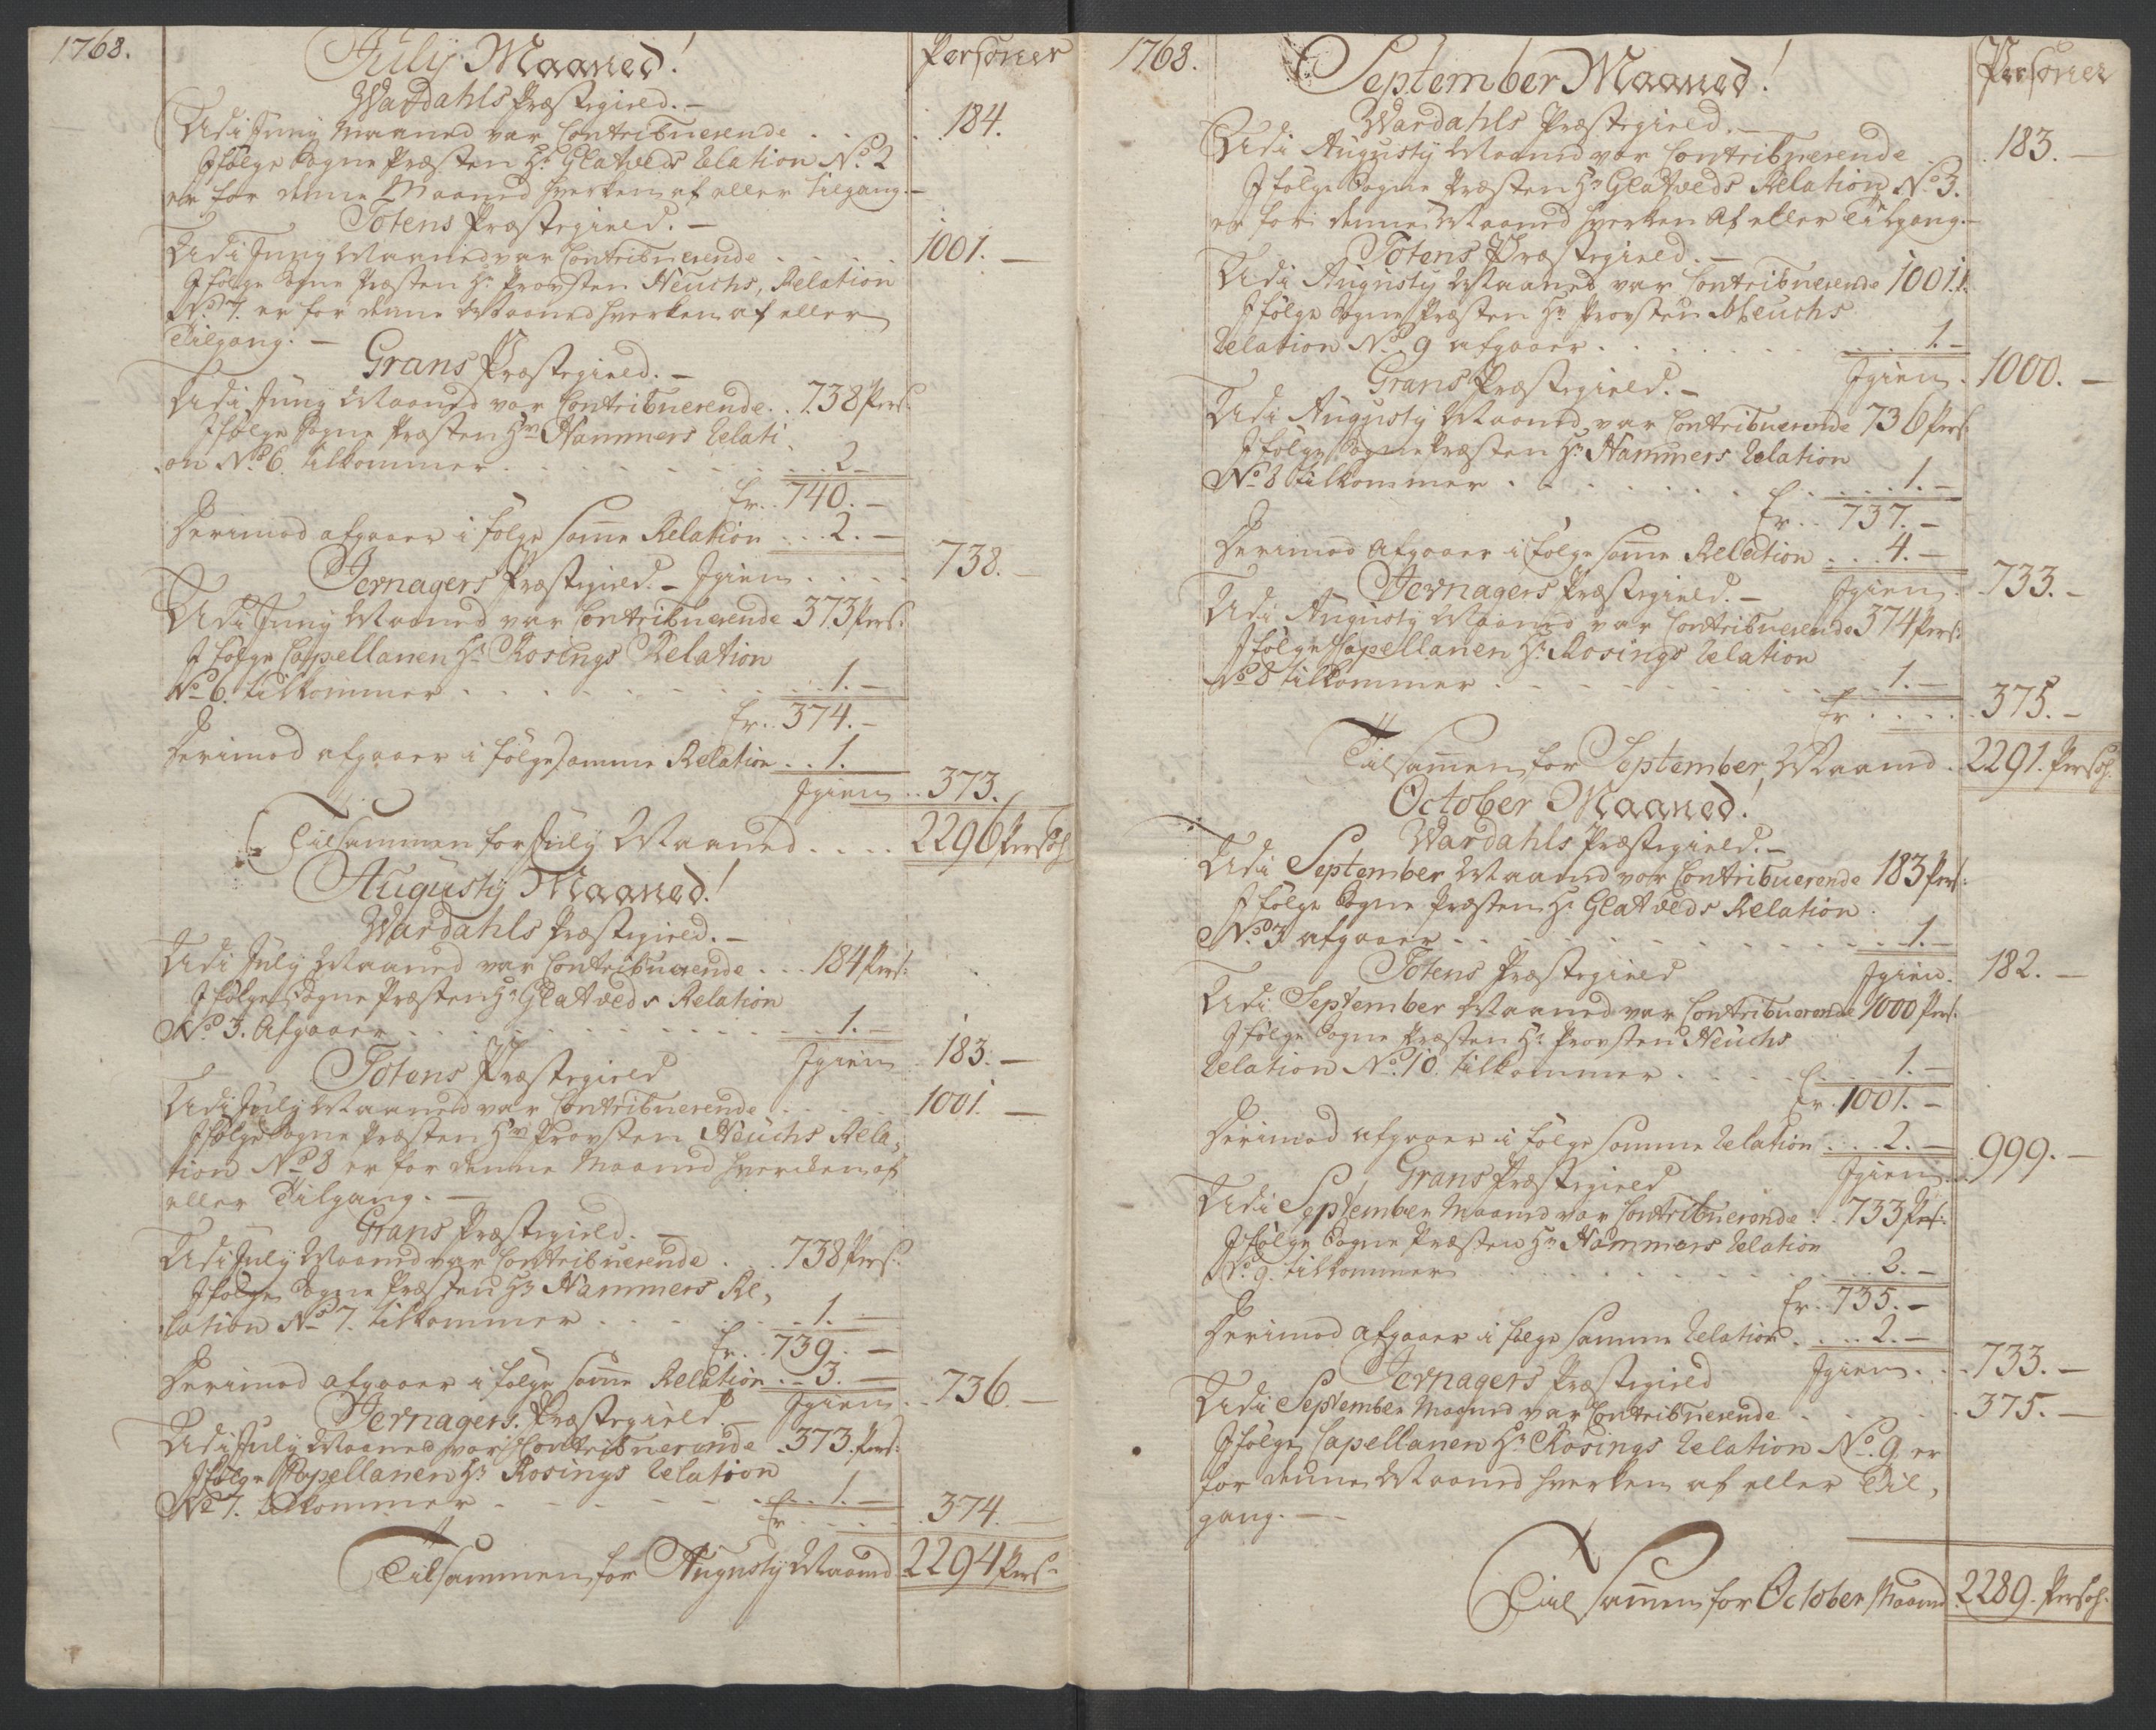 1768.
July Maaned!
Personer
Wardahls Præstegield. –
Udi Juny Maaned var Contribuerende . . . 184.
Ifølge Sogne Præsten Hr Glatveds Relation No 2
er for denne Maaned hverken af eller tilgang. –
Totens Præstegield. –
Udi Juny Maaned var Contribuerende . . . . . 1001. –
Ifølge Sogne Præsten Hr Provsten Heuchs, Relation
No 7. er for denne Maaned hverken af eller
Tilgang. –
Grans Præstegield. –
Udi Juny Maaned var Contribuerende . . 738 Pers:
Ifølge Sogne Præsten Hr Hammers Relati
on No 6. tilkommer . . . . . . . 2 –
Er . . 740. –
Derimod afgaaer i følge same Relation . . . 2. –
Igien . . . . 738. –
Jevnagers Præstegield. –
Udi Juny Maaned var Contribuerende 373 Pers:
Ifølge Capellanen Hr Rosings Relation
No 6. tilkommer . . . . . . . . 1. –
Er . . 374. –
Derimod afgaaer i følge samme Relation . . 1.
Igien . . 373.
Tilsammen for July Maaned . . . . 2296 Persoh
Augusty Maaned!
Wardahls Præstegield. –
Udi July Maaned var Contribuerende . . . 184 Pers:
Ifølge Sogne Præsten Hr Glatveds Relation
No 3. Afgaaer . . . . . . . . . 1. –
Igien . 183. –
Totens Præstegield
Udi July Maaned var Contribuerende . . . . . 1001. –
Ifølge Sogne Præsten Hr Provsten Heuchs Rela,
tion No 8 er for denne Maaned hvercken af
eller Tilgang. –
Grans Præstegield. –
Udi July Maaned var Contribuerende . . . 738 Pers:
Ifølge Sogne Præsten Hr Hammers Re,
lation No 7. tilkommer . . . . . . 1. –
Er . . 739. –
Derimod afgaaer i følge same Relation . . 3. –
Igien . . 736. –
Jevnagers Præstegield. –
Udi July Maaned var Contribuerende . 373. Pers:
Ifølge Capellanen Hr Rosings Relation
No 7. tilkommer . . . . . . . 1. –
Er . . . . . 374. –
Tilsammen for Augusty Maaned 2294 Pers. –
1768.
September Maaned!
Personer
Wardahls Præstegield. –
Udi Augusty Maaned var Contribuerende . . 183. –
Ifølge Sogne Præsten Hr Glatveds Relation No 3.
er for denne Maaned hverken Af eller Tilgang. –
Totens Præstegield. –
Udi Augusty Maaned var Contribuerende 1001.
Ifølge Sogne Præsten Hr Provsten Heuchs
Relation No 9 afgaaer . . . . . . . 1. –
Igien . 1000. –
Grans Præstegield. –
Udi Augusty Maaned var Contribuerende 736 Pers:
Ifølge Sogne Præsten Hr Hammers Relation
No 8 tilkommer . . . . . . . . . 1. –
Er . . 737. –
Derimod Afgaaer i følge same Relation . . . 4. –
Igien . . 733. –
Jevnagers Præstegield. –
Udi Augusty Maaned var Contribuerende 374 Pers:
Ifølge Capellanen Hr Rosings Relation
No 8 tilkommer . . . . . . . . . 1. –
Er . . . . . 375. –
Tilsamen for September Maaned . 2291. Persoh.
October Maaned!
Wardahls Præstegield. –
Udi September Maaned var Contribuerende 183 Pers:
Ifølge Sogne Præsten Hr Glatveds Relation
No 3 afgaaer . . . . . . . . . . 1. –
Igien . 182. –
Totens Præstegield
Udi September Maaned var Contribuerende 1000 Pers:
Ifølge Sogne Præsten Hr Provsten Heuchs
Relation No 10. tilkommer . . . . . . 1. –
Er . 1001. –
Derimod afgaaer i følge samme Relation . . . 2. –
Igien . . 999. –
Grans Præstegield
Udi September Maaned var Contribuerende . . 733 Pers:
Ifølge Sogne Præsten Hr Hammers Relation
No 9. tilkommer . . . . . . . . . 2. –
Er . 735. –
Derimod Afgaaer i følge samme Relation . . . . 2. –
Igien . . . 733. –
Jevnagers Præstegield
Udi September Maaned var Contribuerende . . . . 375. –
Ifølge Capellanen Hr Rosings Relation No 9 er
for denne Maaned hverken af eller Til,
gang. –
Tilsamen for October Maaned 2289. Persoh.